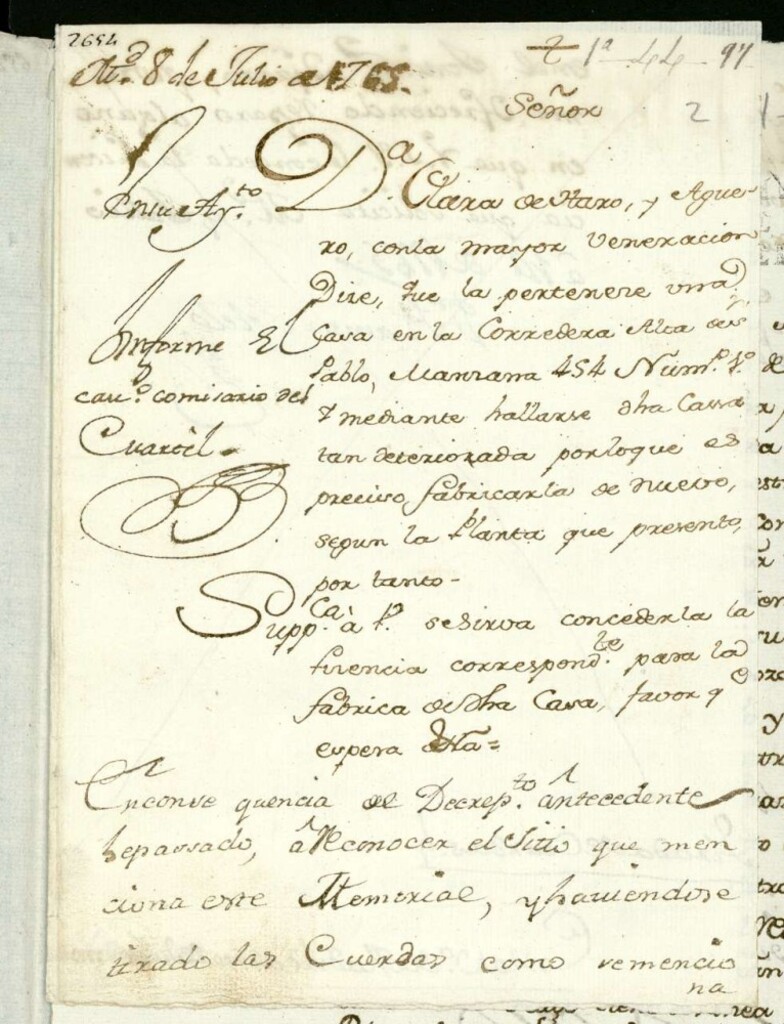 2654
Md. 8 de Julio de 1765.
1ª 44 97
Señor
2
En su Ay.to
Informe El
cav.o comisario del
Cuartel.
D.a Clara de Haro, y Ague-
ro, con la mayor Veneracion
Dize, que la pertenese una
Casa en la Corredera Alta de S.
Pablo, Manzana 454 Num.o 1.o
y mediante hallarse dha Cassa
tan deteriorada por loque es
preciso fabricarla de nuevo,
segun la Planta que presento,
por tanto-
Supp.ca à V. se sirva concederla la
lizencia correspond.te para la
fabrica de dha Casa, favor q
espera
En conse quencia de el Decrep.to antecedente
he passado, à Reconocer el Sitio que men
ciona este Memorial, y haviendose
tirado las Cuerdas como se mencio
na